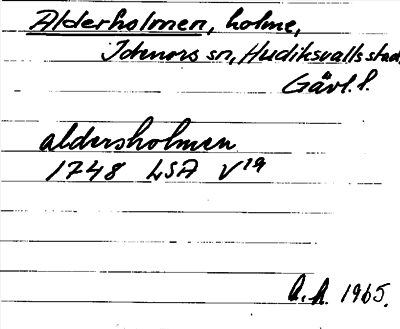 Alderholmen, holme,
Idenors sn, Hudiksvalls stad,
Gävl. l.
aldersholmen
1748 LSA V19
A.A. 1965.